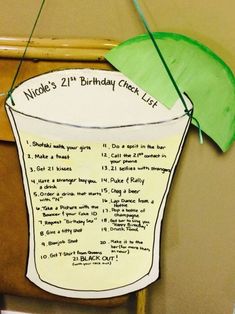 Nicole's 21st Birthday Check List
1. Shotski with your girls
2. Make a toast
3. Get 21 kisses
4. Have a stranger buy you
a drink
5. Order a drink that starts
with "N"
6. Take a Picture with the
Bouncer & your Fake ID
7. Repeat "Birthday Sex"
8. Give a titty shot
9. Blowjob Shot
10. Get T-Shirt from Queens
11. Do a split in the bar
12. Call the 21st contact in
your phone
13. 21 selfies with strangers
14. Puke & Rally
15. Chug a beer
16. Lap Dance from a
Hottie
17. Pop a bottle of
champagne
18. Get bar to sing you
"Happy Birthday"
19. Drunk Food
20. Make it to the
bar (for more than
an hour)
21. BLACK OUT!
(with your neck out)